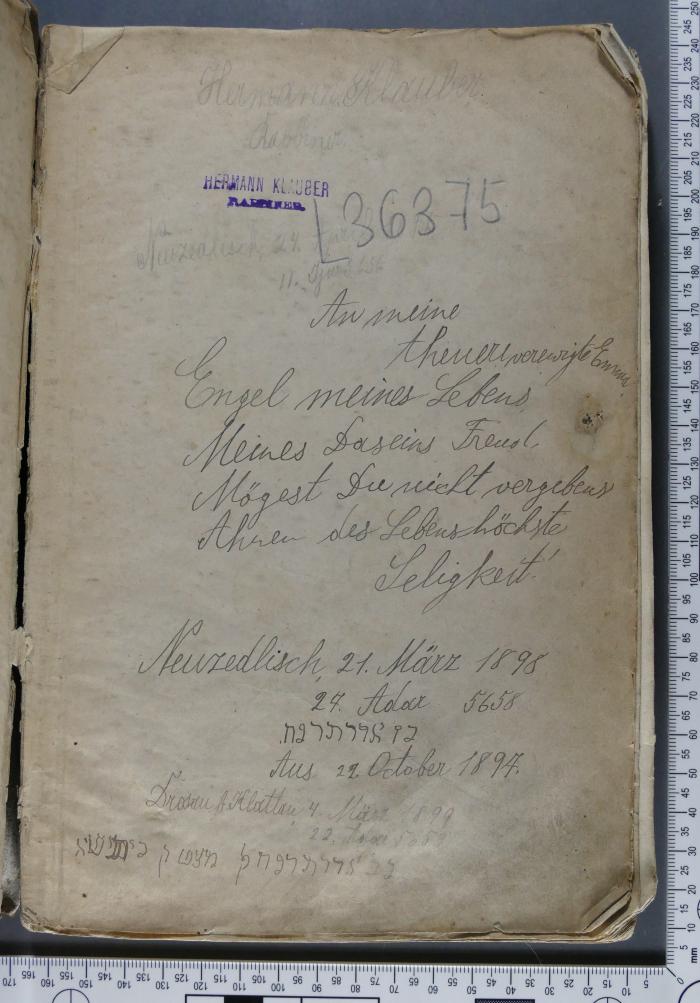 Hermann Klauber
Rabbiner
HERMANN KLAUBER
RABBINER.
36375
Neuzedlisch, 24.
11.
An meine
theuere verewigte Emma
Engel meines Lebens
Meines Daseins Freud,
Mögest Du nicht vergebens
Ahnen des Lebens höchste
Seligkeit!
Neuzedlisch, 21. März 1898
27. Adar 5658
כ״ז אדר תרנ״ח.
Aus 22. October 1894.
4. März 1899
22. Adar